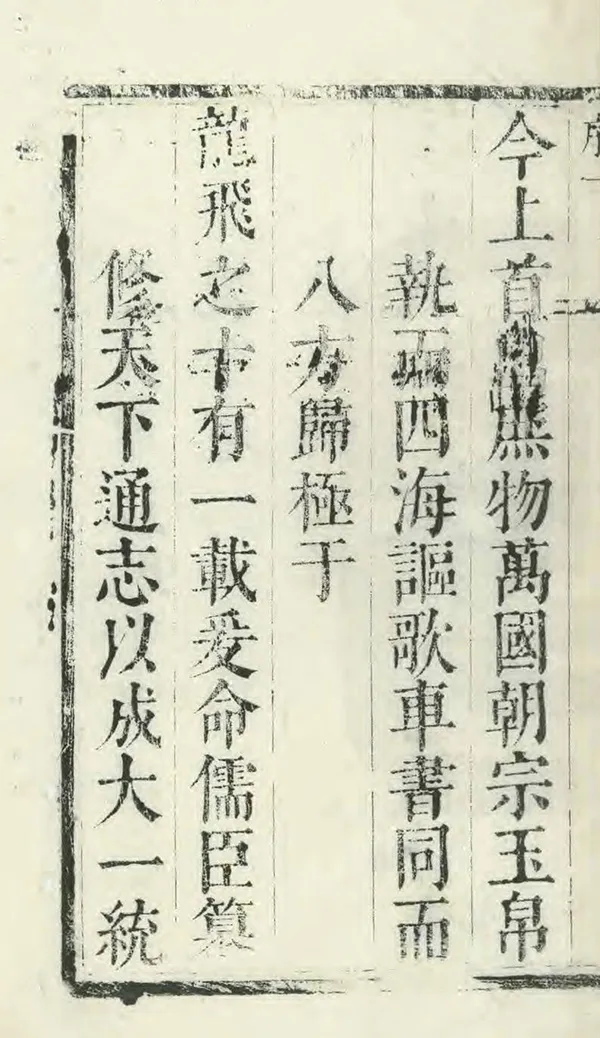 今上首出庶物萬國朝宗玉帛
執而四海謳歌車書同而
八方歸極于
龍飛之十有一載爰命儒臣纂
修天下通志以成大一統